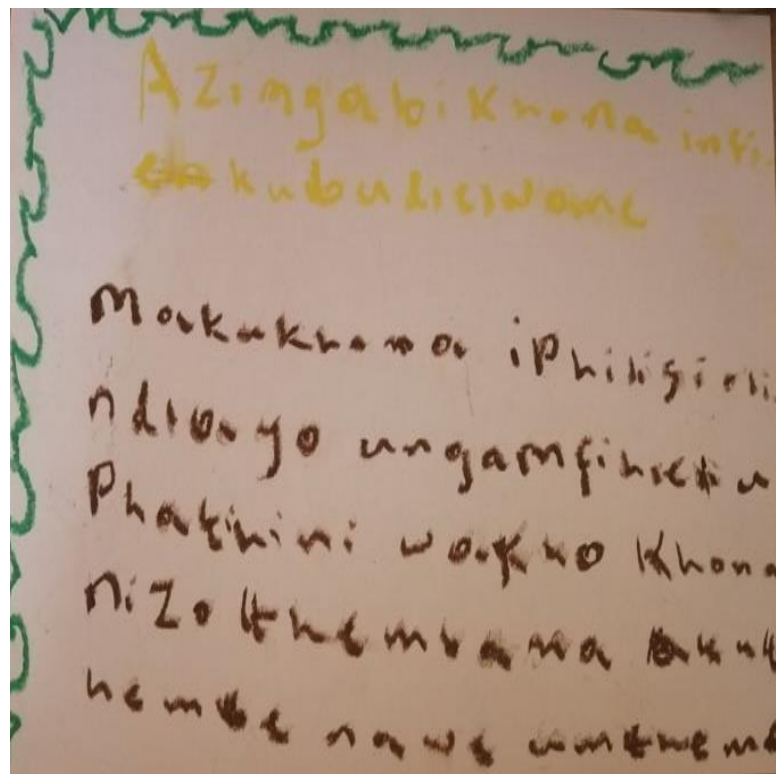 Azingabikhona imfi
kubudlelwane
Makukhona iphiligi oli
ndlwayo ungamfihleli u
Phathini wakho khona
nizothembana akut
hembe nawe umthembe